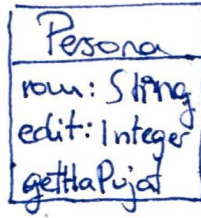 Persona
nom: String
edit: Integer
getHaPujat